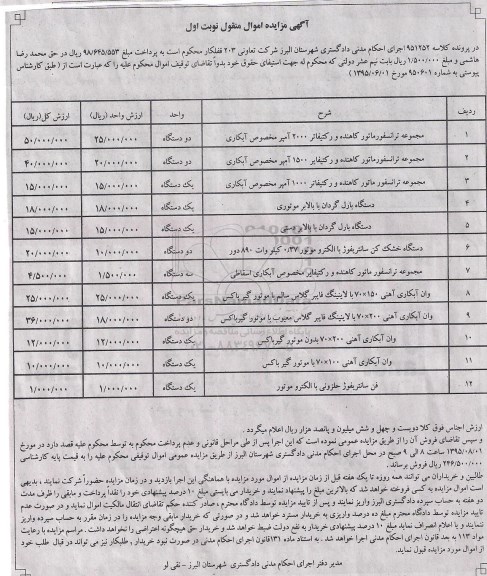 آگهی مزایده اموال منقول نوبت اول
در پرونده کلاسه ۹۵۱۲۵۲ اجرای احکام مدنی دادگستری شهرستان البرز شرکت تعاونی ۲۰۳ قفلکار محکوم است به پرداخت مبلغ ۹۸/۶۴۵/۵۵۳ ریال در حق محمد رضا
هاشمی و مبلغ ۱/۵۰۰/۰۰۰ ریال بابت نیم عشر دولتی که محکوم له جهت استیفای حقوق خود بدواً تقاضای توقیف اموال محکوم علیه را که عبارت است از ( طبق کارشناس
پیوستی به شماره ۹۵۰۶۰۱ مورخ ۱۳۹۵/۰۶/۰۱)
ردیف شرح واحد ارزش واحد (ریال) ارزش کل(ریال)
۱ مجموعه ترانسفورماتور کاهنده و رکتیفایر ۲۰۰۰ آمپر مخصوص آبکاری دو دستگاه ۲۵/۰۰۰/۰۰۰ ۵۰/۰۰۰/۰۰۰
۲ مجموعه ترانسفورماتور کاهنده و رکتیفایر ۱۵۰۰ آمپر مخصوص آبکاری دو دستگاه ۲۰/۰۰۰/۰۰۰ ۴۰/۰۰۰/۰۰۰
۳ مجموعه ترانسفورماتور کاهنده و رکتیفایر ۱۰۰۰ آمپر مخصوص آبکاری یک دستگاه ۱۵/۰۰۰/۰۰۰ ۱۵/۰۰۰/۰۰۰
۴ دستگاه بارل گردان با بالابر موتوری یک دستگاه ۱۸/۰۰۰/۰۰۰ ۱۸/۰۰۰/۰۰۰
۵ دستگاه بارل گردان با بالابر دستی یک دستگاه ۱۵/۰۰۰/۰۰۰ ۱۵/۰۰۰/۰۰۰
۶ دستگاه خشک کن سانتریفوژ با الکترو موتور ۰/۳۷ کیلو وات ۸۹۰ دور دو دستگاه ۱۰/۰۰۰/۰۰۰ ۲۰/۰۰۰/۰۰۰
۷ مجموعه ترانسفورماتور کاهنده و رکتیفایر مخصوص آبکاری اسقاطی سه دستگاه ۱/۵۰۰/۰۰۰ ۴/۵۰۰/۰۰۰
۸ وان آبکاری آهنی ۱۵۰×۷۰ با لاینینگ فایبر گلاس سالم با موتور گیرباکس یک دستگاه ۲۵/۰۰۰/۰۰۰ ۲۵/۰۰۰/۰۰۰
۹ وان آبکاری آهنی ۲۰۰×۷۰ با لاینینگ فایبر گلاس معیوب با موتور گیرباکس دو دستگاه ۱۸/۰۰۰/۰۰۰ ۳۶/۰۰۰/۰۰۰
۱۰ وان آبکاری آهنی ۲۰۰×۷۰ بدون موتور گیرباکس یک دستگاه ۱۲/۰۰۰/۰۰۰ ۱۲/۰۰۰/۰۰۰
۱۱ وان آبکاری آهنی ۱۰۰×۷۰ با موتور گیر باکس یک دستگاه ۱۰/۰۰۰/۰۰۰ ۱۰/۰۰۰/۰۰۰
۱۲ فن سانتریفوژ حلزونی با الکترو موتور یک دستگاه ۱/۰۰۰/۰۰۰ ۱/۰۰۰/۰۰۰
ارزش اجناس فوق کلا دویست و چهل و شش میلیون و پانصد هزار ریال اعلام میگردد .
و سپس تقاضای فروش آن را از طریق مزایده عمومی نموده است که این اجرا پس از طی مراحل قانونی و عدم پرداخت محکوم به توسط محکوم علیه قصد دارد در مورخ
۱۳۹۵/۰۸/۰۱ ساعت ۸ الی ۹ صبح در محل اجرای احکام مدنی دادگستری شهرستان البرز از طریق مزایده عمومی اموال توقیفی محکوم علیه را به قیمت پایه کارشناسی
۲۴۶/۵۰۰/۰۰۰ ریال فروش برساند .
طالبین و خریداران می توانند همه روزه تا یک هفته قبل از زمان مزایده از اموال مورد مزایده با هماهنگی این اجرا بازدید و در زمان مزایده حضوراً شرکت نمایند ، بدیهی
است اموال مزایده به کسی فروخته خواهد شد که بالاترین مبلغ را پیشنهاد نمایند و خریدار می بایستی مبلغ ۱۰ درصد پیشنهادی خود را نقداً پرداخت و مابقی را ظرف مدت
دو هفته به حساب سپرده دادگستری البرز واریز نمایند و پس از تایید مزایده توسط دادگاه محترم ، صادر کننده حکم تقاضای انتقال مالکیت اموال نماید و در صورت عدم
تایید مزایده توسط دادگاه محترم مبلغ ده درصد واریزی به خریدار مسترد خواهد شد و در صورتی که خریدار مابقی وجه مزایده را در زمان مقرر به حساب سپرده واریز
ننمایند و یا اعلام انصراف نماید مبلغ ۱۰ درصد پیشنهادی خریدار به نفع دولت ضبط خواهد شد و خریدار حق هیچگونه اعتراضی را نخواهد داشت . مراسم مزایده با رعایت
مواد ۱۱۳ به بعد قانون اجرای احکام مدنی اجرا خواهد شد . به استناد ماده ۱۳۱ قانون اجرای احکام مدنی در صورت نبود خریدار ، طلبکار نیز می تواند در قبال طلب خود
از اموال مورد مزایده قبول نماید.
مدیر دفتر اجرای احکام مدنی دادگستری شهرستان البرز - نقی لو